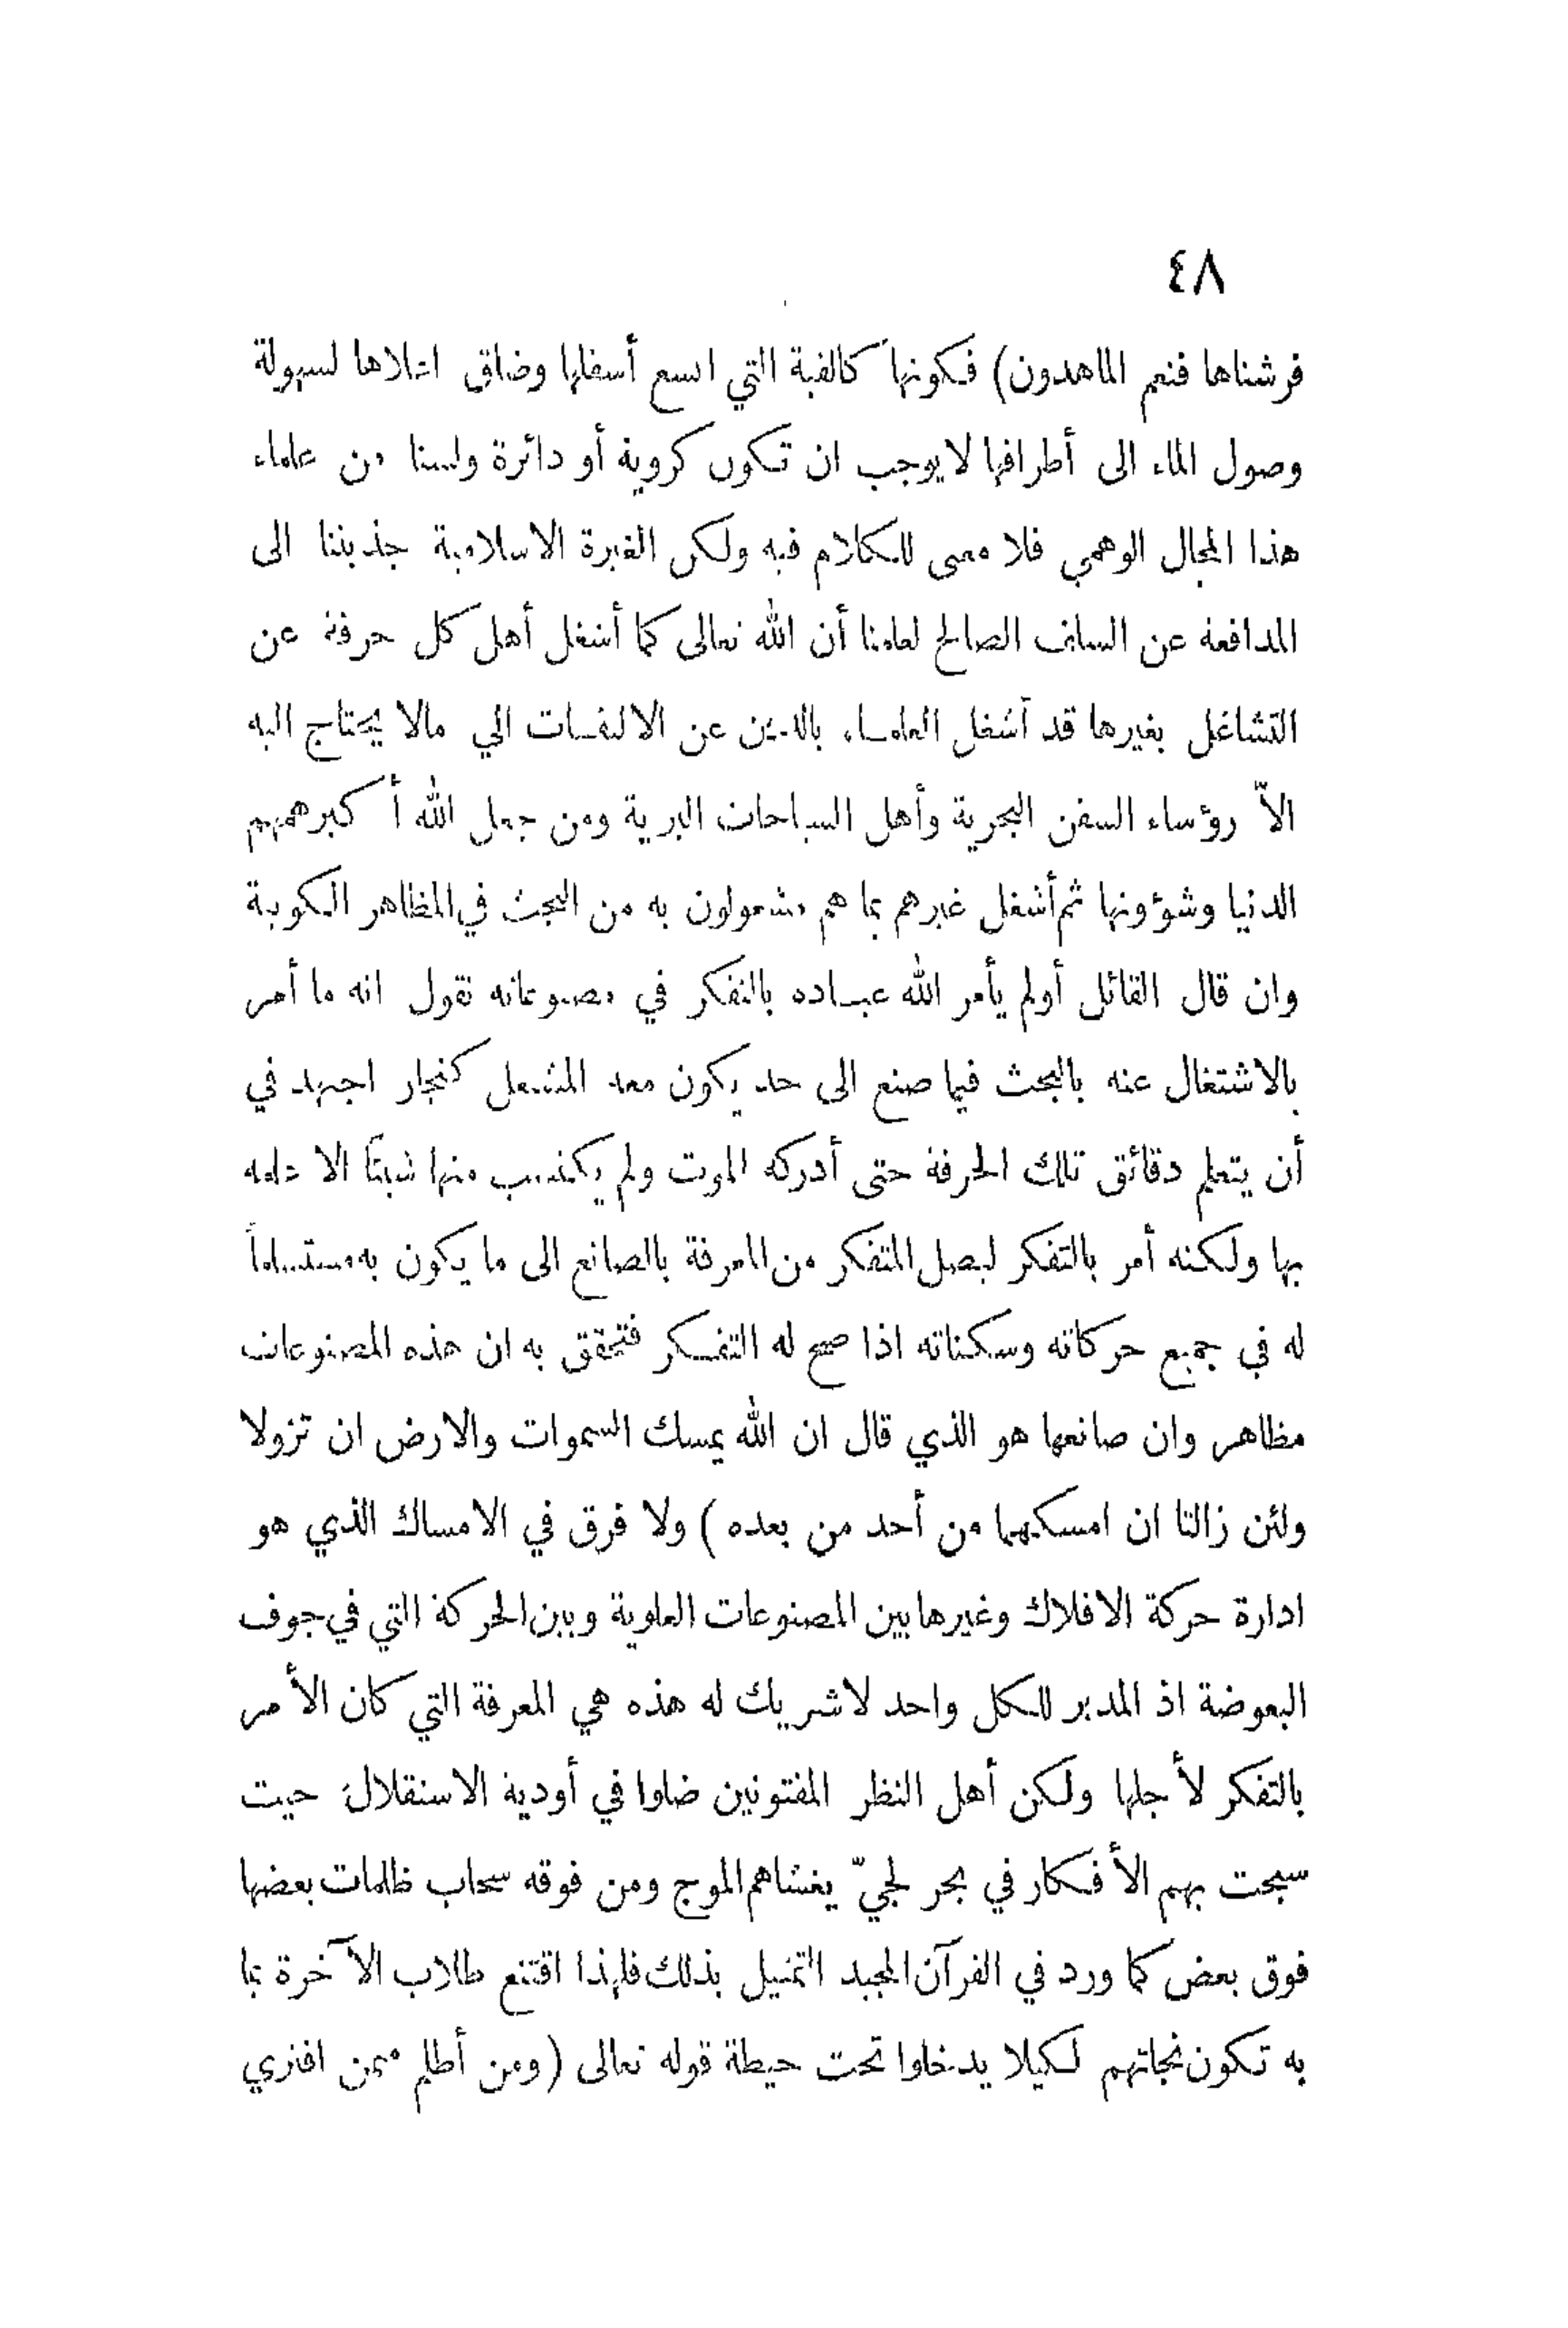 ٤٨
فرشناها فنعم الماهدون) فكونها كالقبة التي اتسع أسفلها وضاق اعلاها لسهولة
وصول الماء الى أطرافها لا يوجب ان تكون كروية أو دائرة ولسنا من علماء
هذا المجال الوهمي فلا معنى للكلام فيه ولكن الغيرة الاسلامية جذبتنا الى
المدافعة عن السلف الصالح لعلمنا أن الله تعالى كما أشغل أهل كل حرفة عن
التشاغل بغيرها قد أشغل العلماء بالدين عن الالتفات الي مالا يحتاج اليه
الاّ رؤساء السفن البحرية وأهل السياحات البرية ومن جعل الله أكبر همهم
الدنيا وشؤونها ثم أشغل غيرهم بما هم مشغولون به من البحث في المظاهر الكونية
وان قال القائل أولم يأمر الله عباده بالتفكر في مصنوعاته نقول انه ما أمر
بالاشتغال عنه بالبحث فيما صنع الى حد يكون معه المشتغل كنجار اجتهد في
أن يتعلم دقائق تلك الحرفة حتى أدركه الموت ولم يكتسب منها شيئا الا علمه
بها ولكنه أمر بالتفكر ليصل المتفكر من المعرفة بالصانع الى ما يكون به مستسلماً
له في جميع حركاته وسكناته اذا صح له التفكر فتحقق به ان هذه المصنوعات
مظاهر وان صانعها هو الذي قال ان الله يمسك السموات والارض ان تزولا
ولئن زالتا ان امسكهما من أحد من بعده ) ولا فرق في الامساك الذي هو
ادارة حركة الافلاك وغيرها بين المصنوعات العلوية وبين الحركة التي في جوف
البعوضة اذ المدبر للكل واحد لا شريك له هذه هي المعرفة التي كان الأمر
بالتفكر لأجلها ولكن أهل النظر المفتونين ضلوا في أودية الاستقلال حيث
سبحت بهم الأفكار في بحر لجيّ يغشاهم الموج ومن فوقه سحاب ظلمات بعضها
فوق بعض كما ورد في القرآن المجيد التمثيل بذلك فلهذا اقتنع طلاب الآخرة بما
به تكون نجاتهم لكيلا يدخلوا تحت حيطة قوله تعالى (ومن أظلم ممن افترى